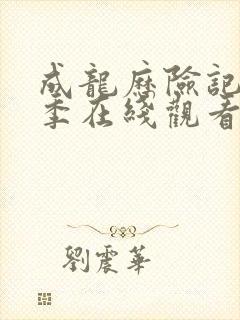 成龍歷險記
季在綫觀看
劉震華